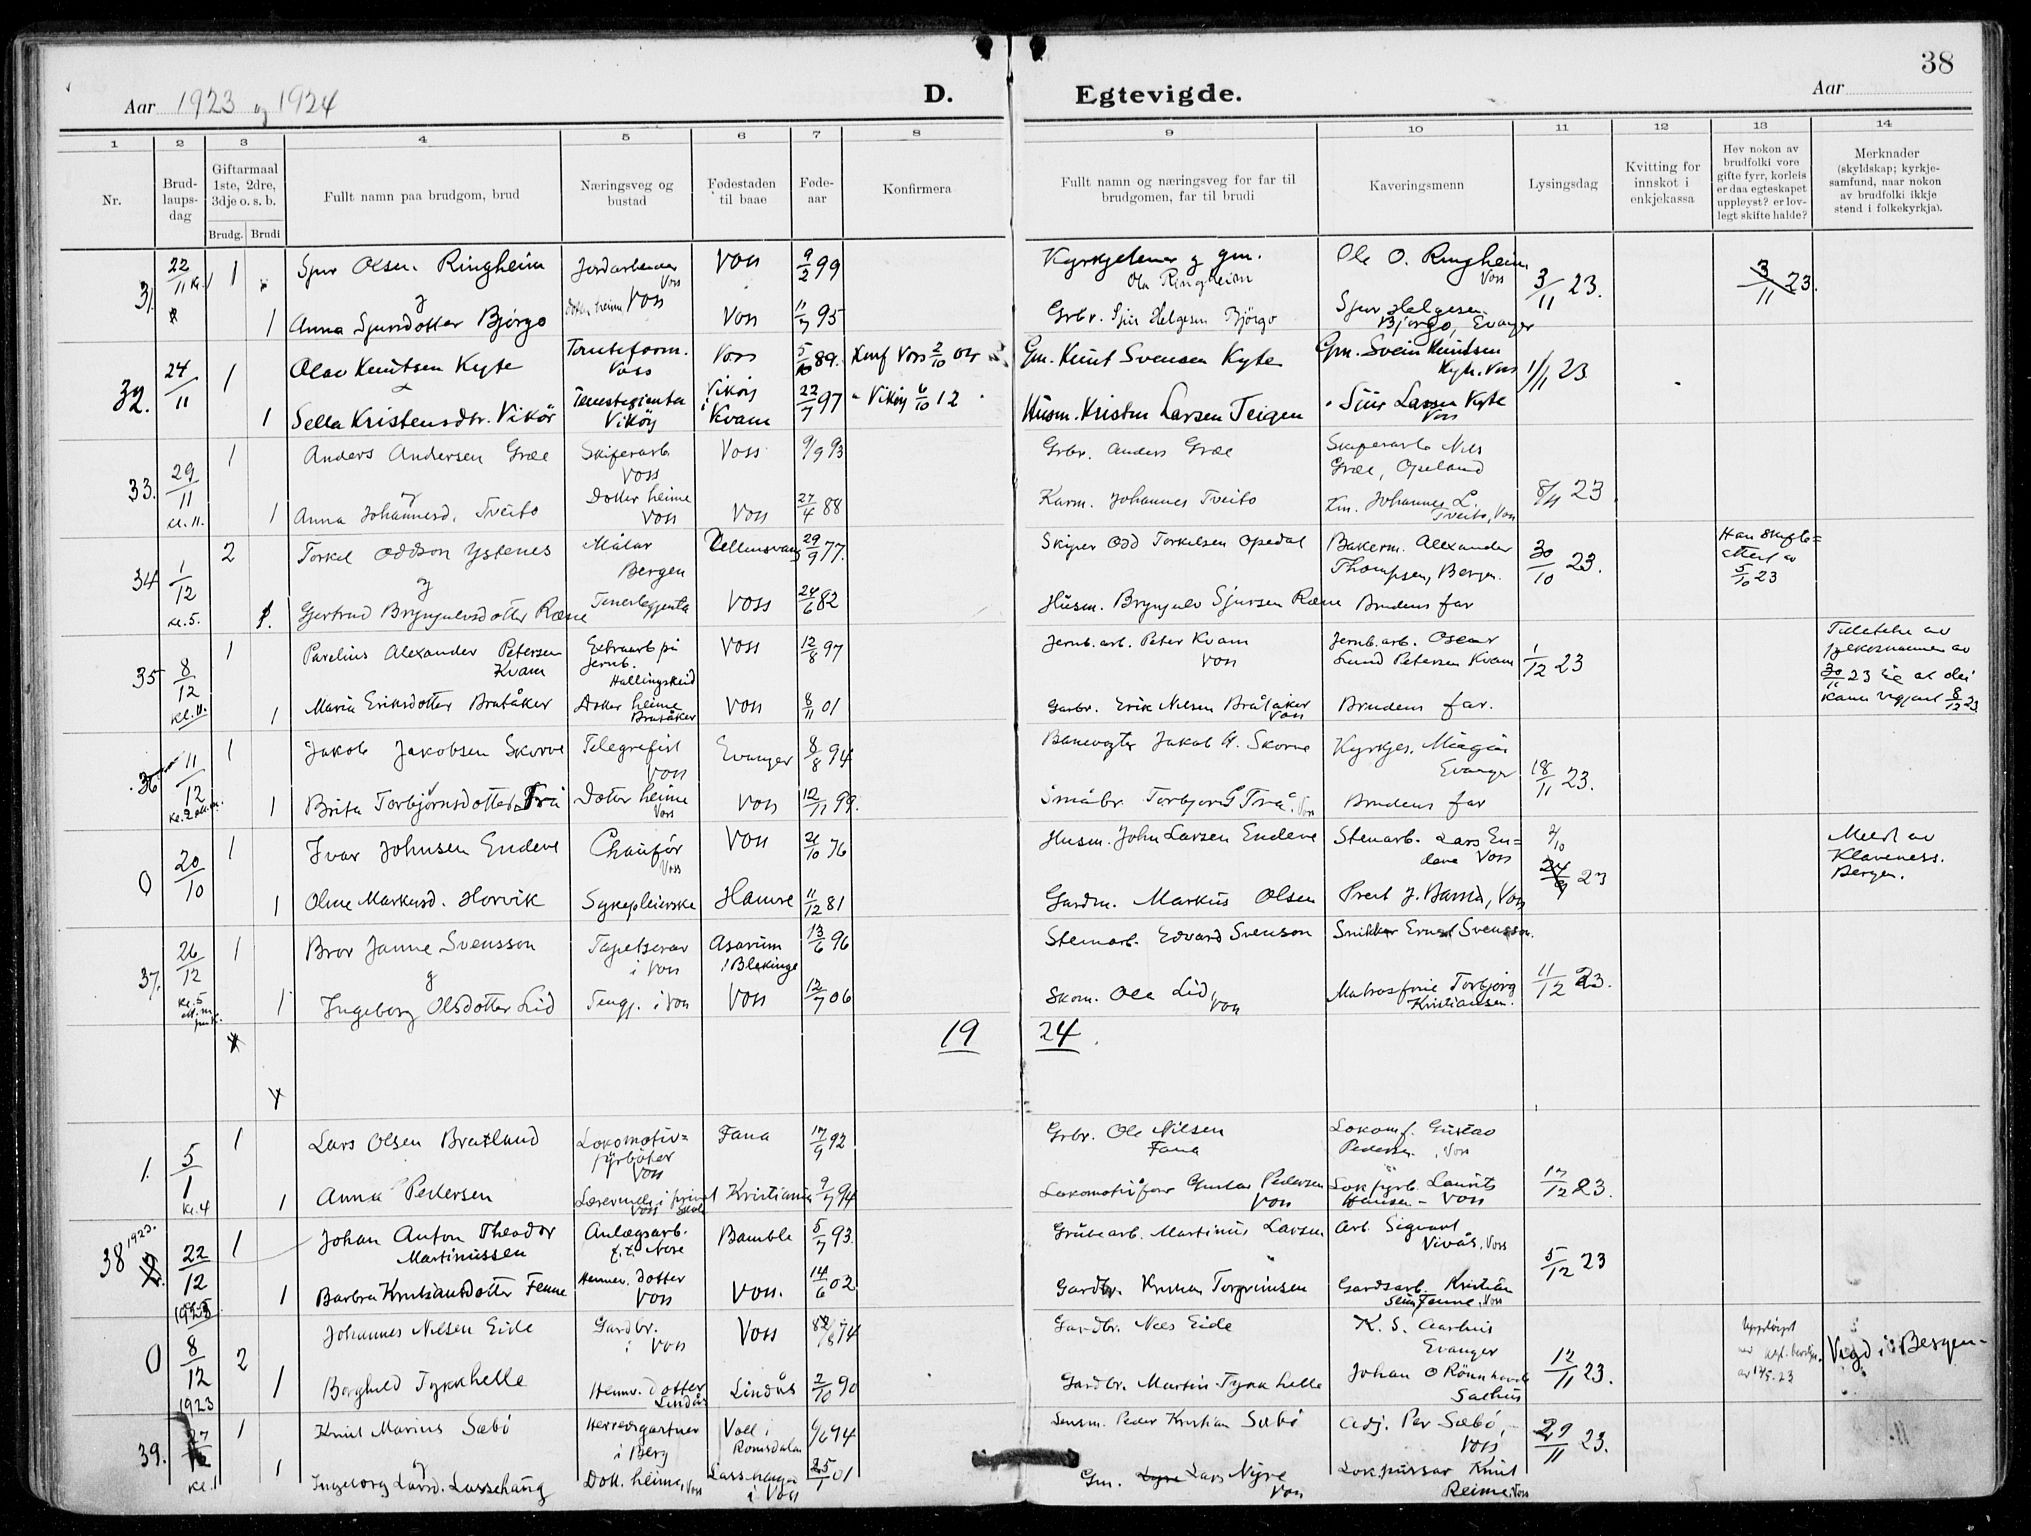 38
Aar 1923 og 1924
D. Egtevigde.
Aar
1 2 3 4 5 6 7 8 9 10 11 12 13 14
Nr.
Brud-
laups-
dag
Giftarmaal
1ste, 2dre,
3dje o. s. b.
Brudg. Brudi
Fullt namn paa brudgom, brud
Næringsveg og
bustad
Fødestaden
til baae
Føde-
aar
Konfirmera
Fullt namn og næringsveg for far til
brudgomen, far til brudi
Kaveringsmenn
Lysingsdag
Kvitting for
innskot i
enkjekassa
Hev nokon av
brudfolki vore
gifte fyrr, korleis
er daa egteskapet
uppløyst? er lov-
legt skifte halde?
Merknader
(skyldskap; kyrkje-
samfund, naar nokon
av brudfolki ikkje
stend i folkekyrkja).
31. 22/11 1 Sjur Olsen Ringheim Jordarbeider Voss Voss 9/2 99 Kyrkjetener og gm. Ola Ringheim Ole O. Ringheim Voss 3/11 23. 3/11 23.
og
1 Anna Sjursdotter Bjørgo Dotter heime Voss Voss 11/7 95 Grbr. Sjur Helgesen Bjørgo Sjur Helgesen Bjørgo, Evanger
32. 24/11 1 Olav Knutsen Kyte Voss Voss 5/10 89. Konf Voss 2/10 04 Gm. Knut Svensen Kyte Gm. Svein Knutsen Kyte, Voss 1/11 23
1 Sella Kristensdtr. Vikør Tenestegjenta Vikøy Vikøy i Kvam 22/7 97 " Vikøy 6/10 12 Husm. Kristen Larsen Teigen " Sjur Larsen Kyte Voss
33. 29/11 kl. 11. 1 Anders Andersen Græe Skiferarb. Voss Voss 9/9 93 Grbr. Anders Græe Skiferarb. Nils Græe, Opeland 8/11 23
og
1 Anna Johannesd. Tveito Dotter heime Voss Voss 27/4 88 Karm. Johannes Tveito Km. Johannes L. Tveito, Voss
34 1/12 kl. 5. 2 Torkel Oddson Ystenes Målar Bergen Ullensvang 29/9 77. Skiper Odd Torkelsen Opedal Bakerm. Alexander Thompsen, Bergen. 30/10 23. Han skifte= attest av 5/10 23
og
1. Gjertrud Brynjulvsdotter Rene Tenestegjenta Voss 24/6 82 Husm. Brynjulv Sjursen Rene Brudens far
35 8/12 kl. 11. 1 Parelius Alexander Petersen Kvam Extraarb på Jernb. Hallingskeid Voss 12/8 97 Jernb. arb. Peter Kvam Voss Jernb. arb. Oscar Lund Petersen Kvam 1/12 23 Tilletelse av fylkesmannen av 30/11 23 til at dei kann vigjast 8/12 23
1 Maria Eriksdotter Bratåker Dotter heime Bratåker Voss 8/11 01 Gardbr. Erik Nilsen Bråtåker Voss Brudens far.
36 11/12 kl. 2 1 Jakob Jakobsen Skorve Telegrafist Voss Evanger 8/8 94 Banevogter Jakob H. Skorve Kyrkjes. Evanger 18/11 23.
1 Brita Torbjørnsdotter Trå Dotter heime Voss Voss 12/11 99. Småbr. Torbjørn G Trå, Voss Brudens far
0 20/10 1 Ivar Johnsen Endeve Chaufør Voss Voss 21/10 76 Husm. John Larsen Endeve Stenarb. Lars En= deve Voss 2/10 24/9 23 Meld. av Klaveness. Bergen.
1 Oline Markusd. Horvik Sykepleierske Hamre 11/12 81 Gardm. Markus Olsen Prest J. Barsnes, Voss
37. 26/12 kl. 5 1 Bror Janne Svensson Tapetserar i Voss Asarum i Blekinge 13/6 96 Stenarb. Edvard Svenson Snikkar Ernst Svensson. 11/12 23.
og
1 Ingeborg Olsdotter Lid Tengj. i Voss Voss 12/7 06 Skom. Ole Lid, Voss Matrosfrue Torbjørg Kristiansen.
19 24
1. 5/1 kl. 4 1 Lars Olsen Breitland Lokomotiv= fyrbøter Voss Fana 17/9 92 Grbr. Ole Nilsen Fana Lokomf. Gustav Pedersen, Voss 17/12 23.
1 Anna Pedersen Lærerinde i privat skule Voss Kristiania 9/7 94 Lokomotivfører Gustav Pedersen Voss Lok fyrb. Laurits Hansen - Voss
38 1923. 22/12 1923 1 Johan Anton Theodor Martinussen Anlægsarb. t. t. Nore Bamble 5/7 93 Grubearb. Martinus Larsen Arb. Sigvart Vivås, Voss 5/12 23
1 Barbra Kristiansdotter Fenne Heimev. dotter Voss Voss. 14/6 02 Gardbr. Kristian Torgrimsen Gardsarb. Kristian Fenne, Voss
0 8/12 1923 2 Johannes Nilsen Eide Gardbr. i Voss Voss 74 Gardbr. Nils Eide K. S. Aarhus Evanger 12/11 23. Uppløyst av 14/5. 23 Vigd i Bergen
1 Borghild Tyknhelle Heimv. dotter Lindås Lindås 2/10 90 Gardbr. Martin Tyknhelle Johan O Rønnhovde Salhus
39. 27/12 kl. 1 1 Knut Marius Sæbø Herredsgartner i Berg Voll i Romsdalen 6/6 94 Lensm. Peder Kristian Sæbø Adj. Per Sæbø, Voss 29/11 23.
og
1 Ingeborg Larsd. Lassehaug Dott. heime, Voss Lassehaugen i Voss 25/7 01 Gm. Lars Nyre Voss Lokpussar Knut Reime, Voss